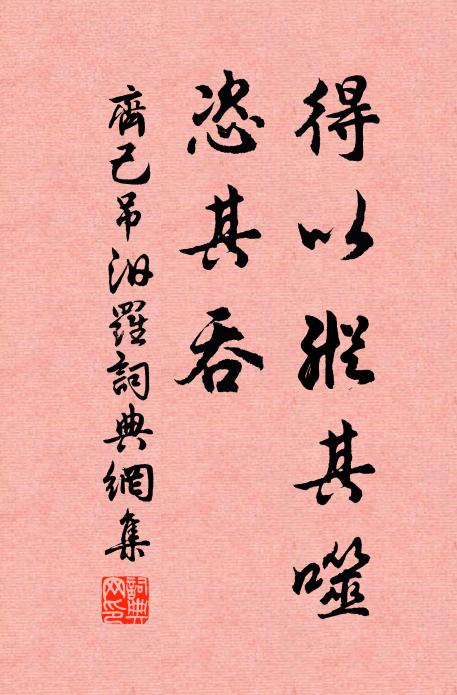 得以縱其噬
恣其吞
齊己吊汨羅詞典網集
詞典網印